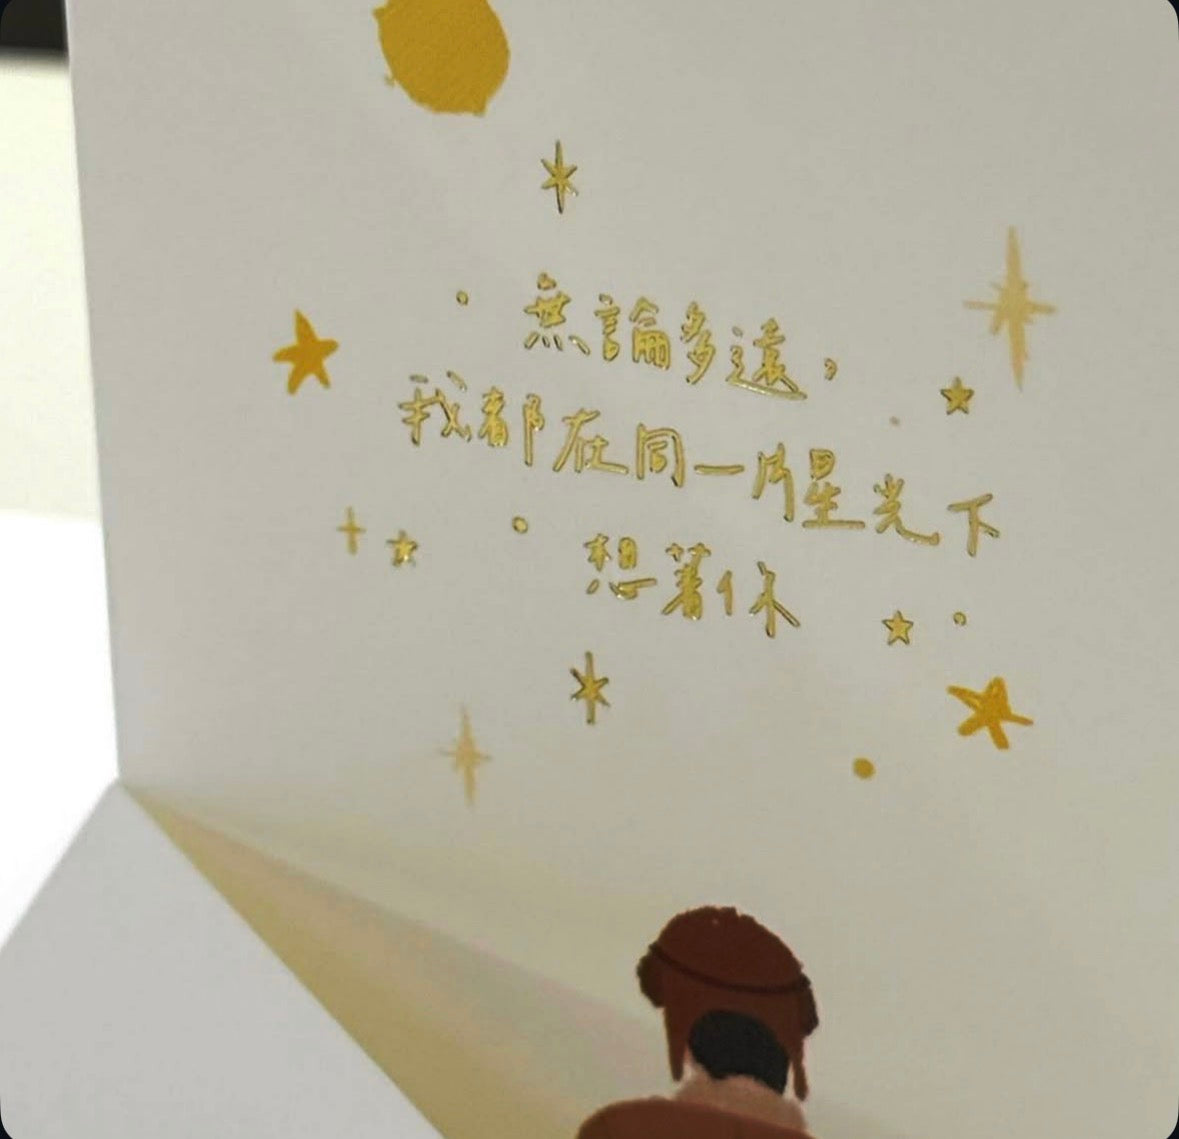 無論多遠，
我都在同一片星光下
想著你